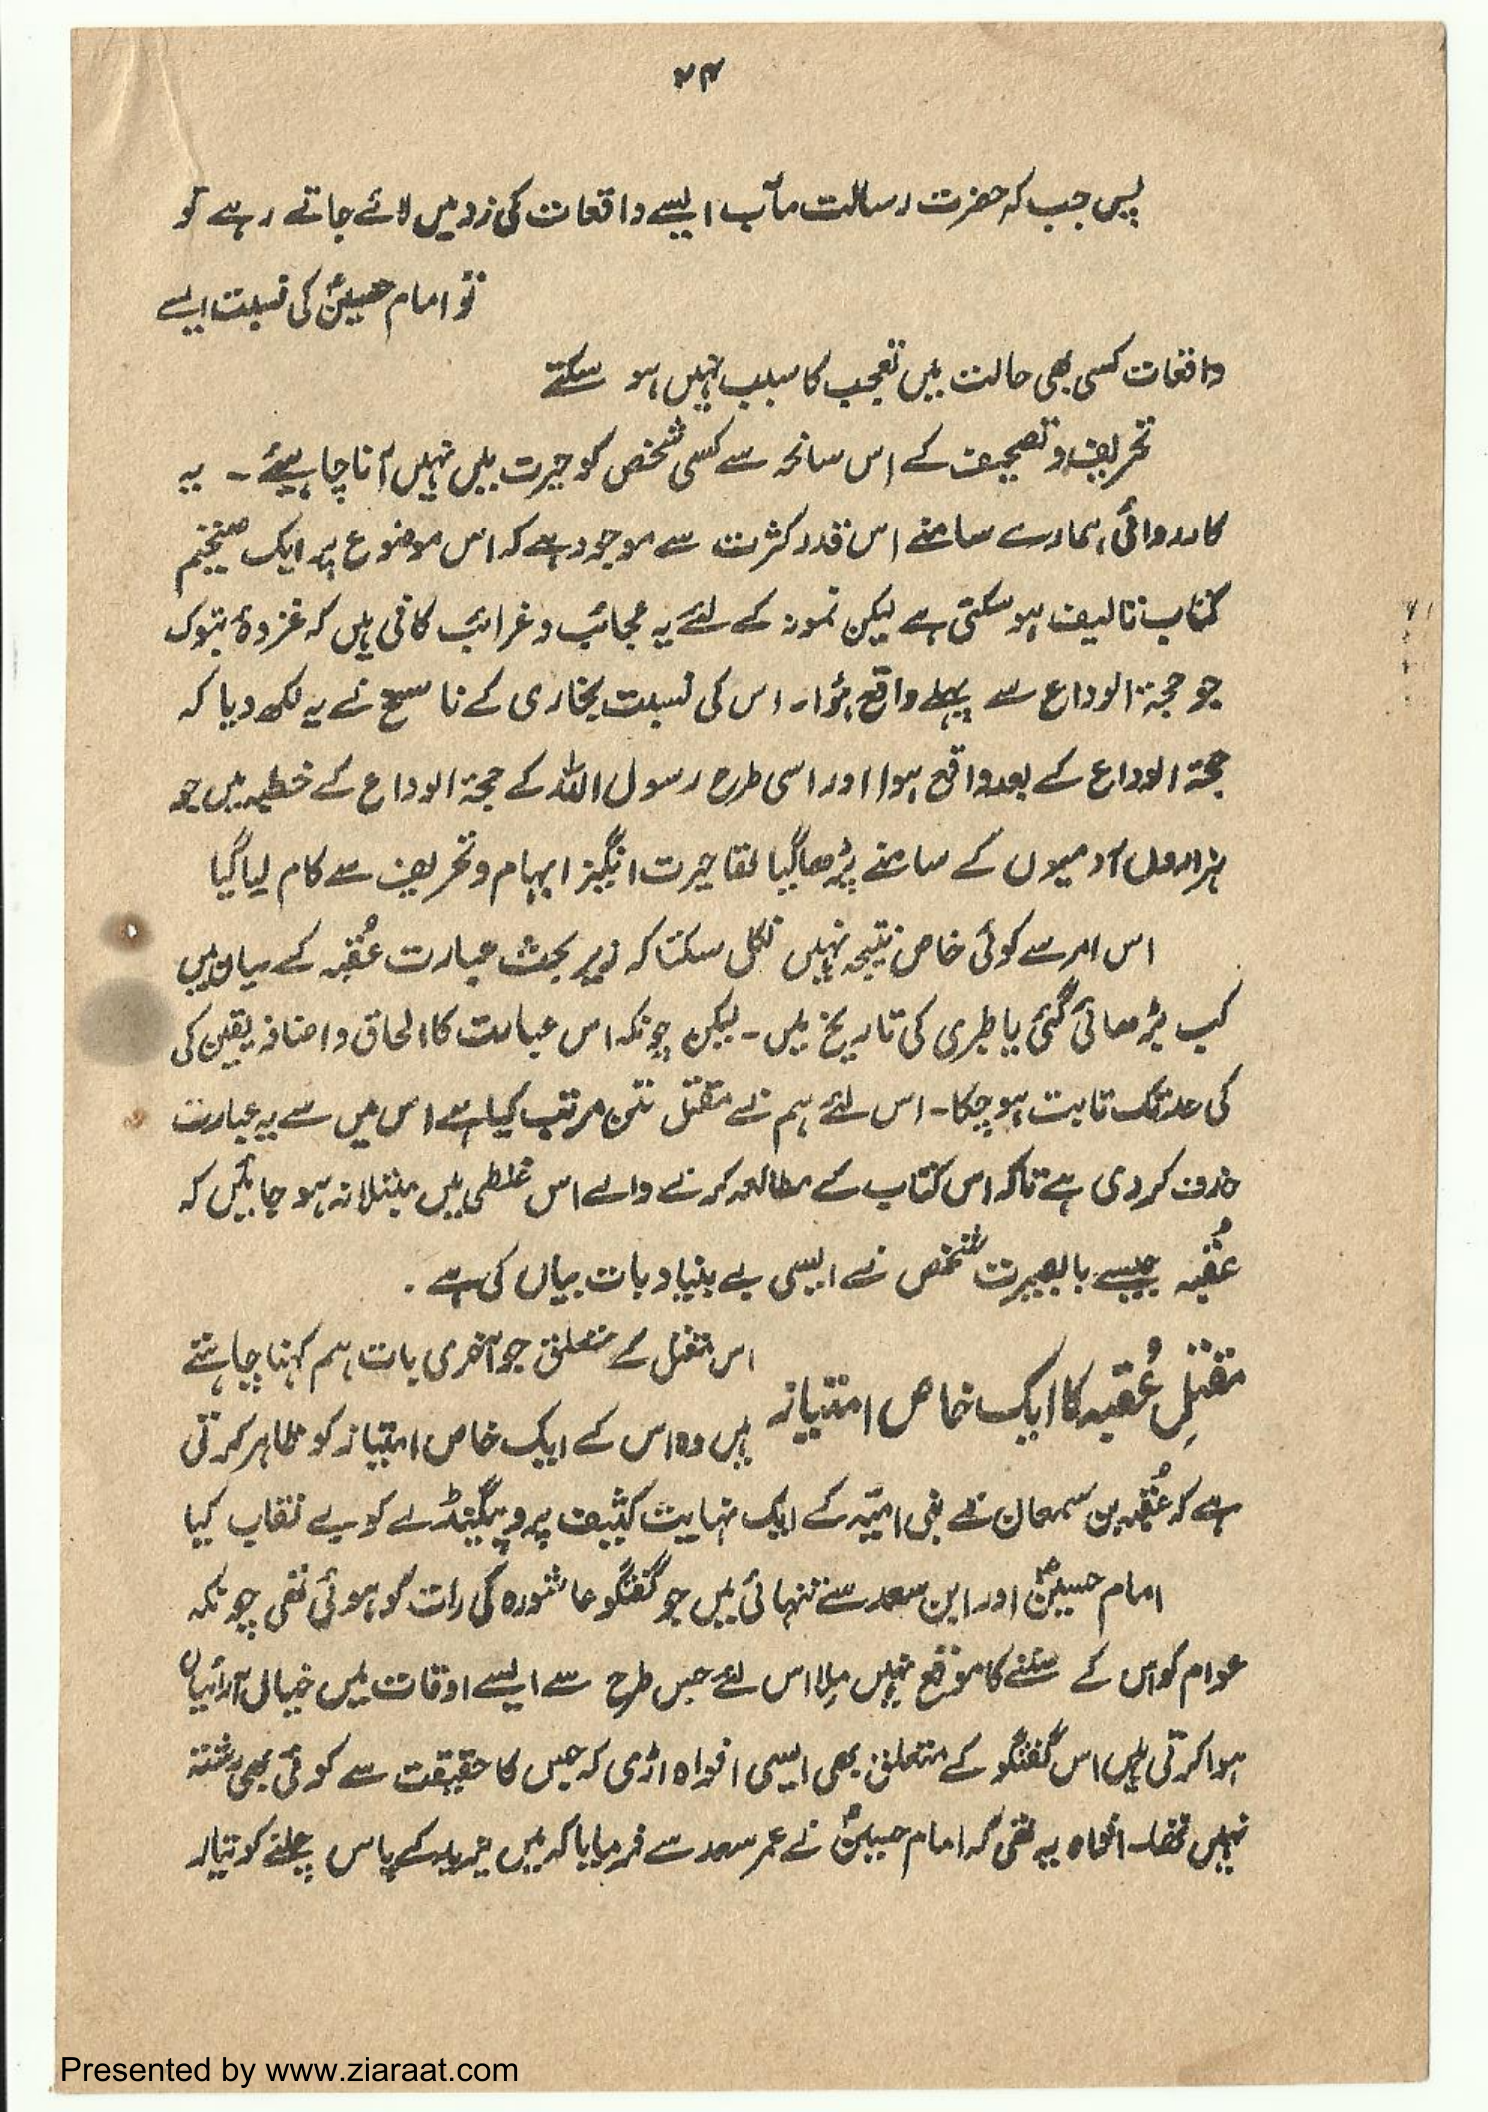 ۷۴
پس جب کہ حضرت رسالت مآب ایسے واقعات کی زد میں لائے جاتے رہے تو
تو امام حسینؑ کی نسبت ایسے
واقعات کسی بھی حالت میں تعجب کا سبب نہیں ہو سکتے
تحریف و تصحیف کے اس سانحہ سے کسی شخص کو حیرت میں نہیں آنا چاہیئے ۔ یہ
کارروائی ہمارے سامنے اس قدر کثرت سے موجود ہے کہ اس موضوع پر ایک ضخیم
کتاب تالیف ہو سکتی ہے لیکن نمونہ کے لئے یہ عجائب و غرائب کافی ہیں کہ غزوۂ تبوک
جو حجۃ الوداع سے پہلے واقع ہؤا۔ اس کی نسبت بخاری کے ناسخ نے یہ لکھ دیا کہ
حجۃ الوداع کے بعد واقع ہوا اور اسی طرح رسول اللہ کے حجۃ الوداع کے خطبہ میں جو
ہزاروں آدمیوں کے سامنے پڑھا گیا تھا حیرت انگیز ابہام و تحریف سے کام لیا گیا
اس امر سے کوئی خاص نتیجہ نہیں نکل سکتا کہ زیر بحث عبارت عُقبہ کے بیان میں
کب بڑھائی گئی یا طبری کی تاریخ میں ۔ لیکن چونکہ اس عبارت کا الحاق و اضافہ یقین کی
کی حد تک ثابت ہو چکا۔ اس لئے ہم نے مقتل متن مرتب کیا ہے اس میں سے یہ عبارت
حذف کر دی ہے تاکہ اس کتاب کے مطالعہ کرنے والے اس غلطی میں مبتلا نہ ہو جائیں کہ
عُقبہ جیسے بالبصیرت شخص نے ایسی بے بنیاد بات بیان کی ہے .
مقتلِ عُقبہ کا ایک خاص امتیاز
اس مقتل کے متعلق جو آخری بات ہم کہنا چاہتے
ہیں وہ اس کے ایک خاص امتیاز کو ظاہر کرتی
ہے کہ عُقبہ بن سمعان نے بنی امیّہ کے ایک نہایت کثیف پروپیگنڈے کو بے نقاب کیا
امام حسینؑ اور ابن سعد سے تنہائی میں جو گفتگو عاشورہ کی رات کو ہوئی تھی چونکہ
عوام کو اس کے سننے کا موقع نہیں مِلا اس لئے جس طرح سے ایسے اوقات میں خیال آرائیاں
ہوا کرتی ہیں اس گفتگو کے متعلق بھی ایسی افواہ اڑی کہ جس کا حقیقت سے کوئی بھی رشتہ
نہیں تھا۔ افواہ یہ تھی کہ امام حسینؑ نے عمر سعد سے فرمایا کہ میں یزید کے پاس چلنے کو تیار
Presented by www.ziaraat.com